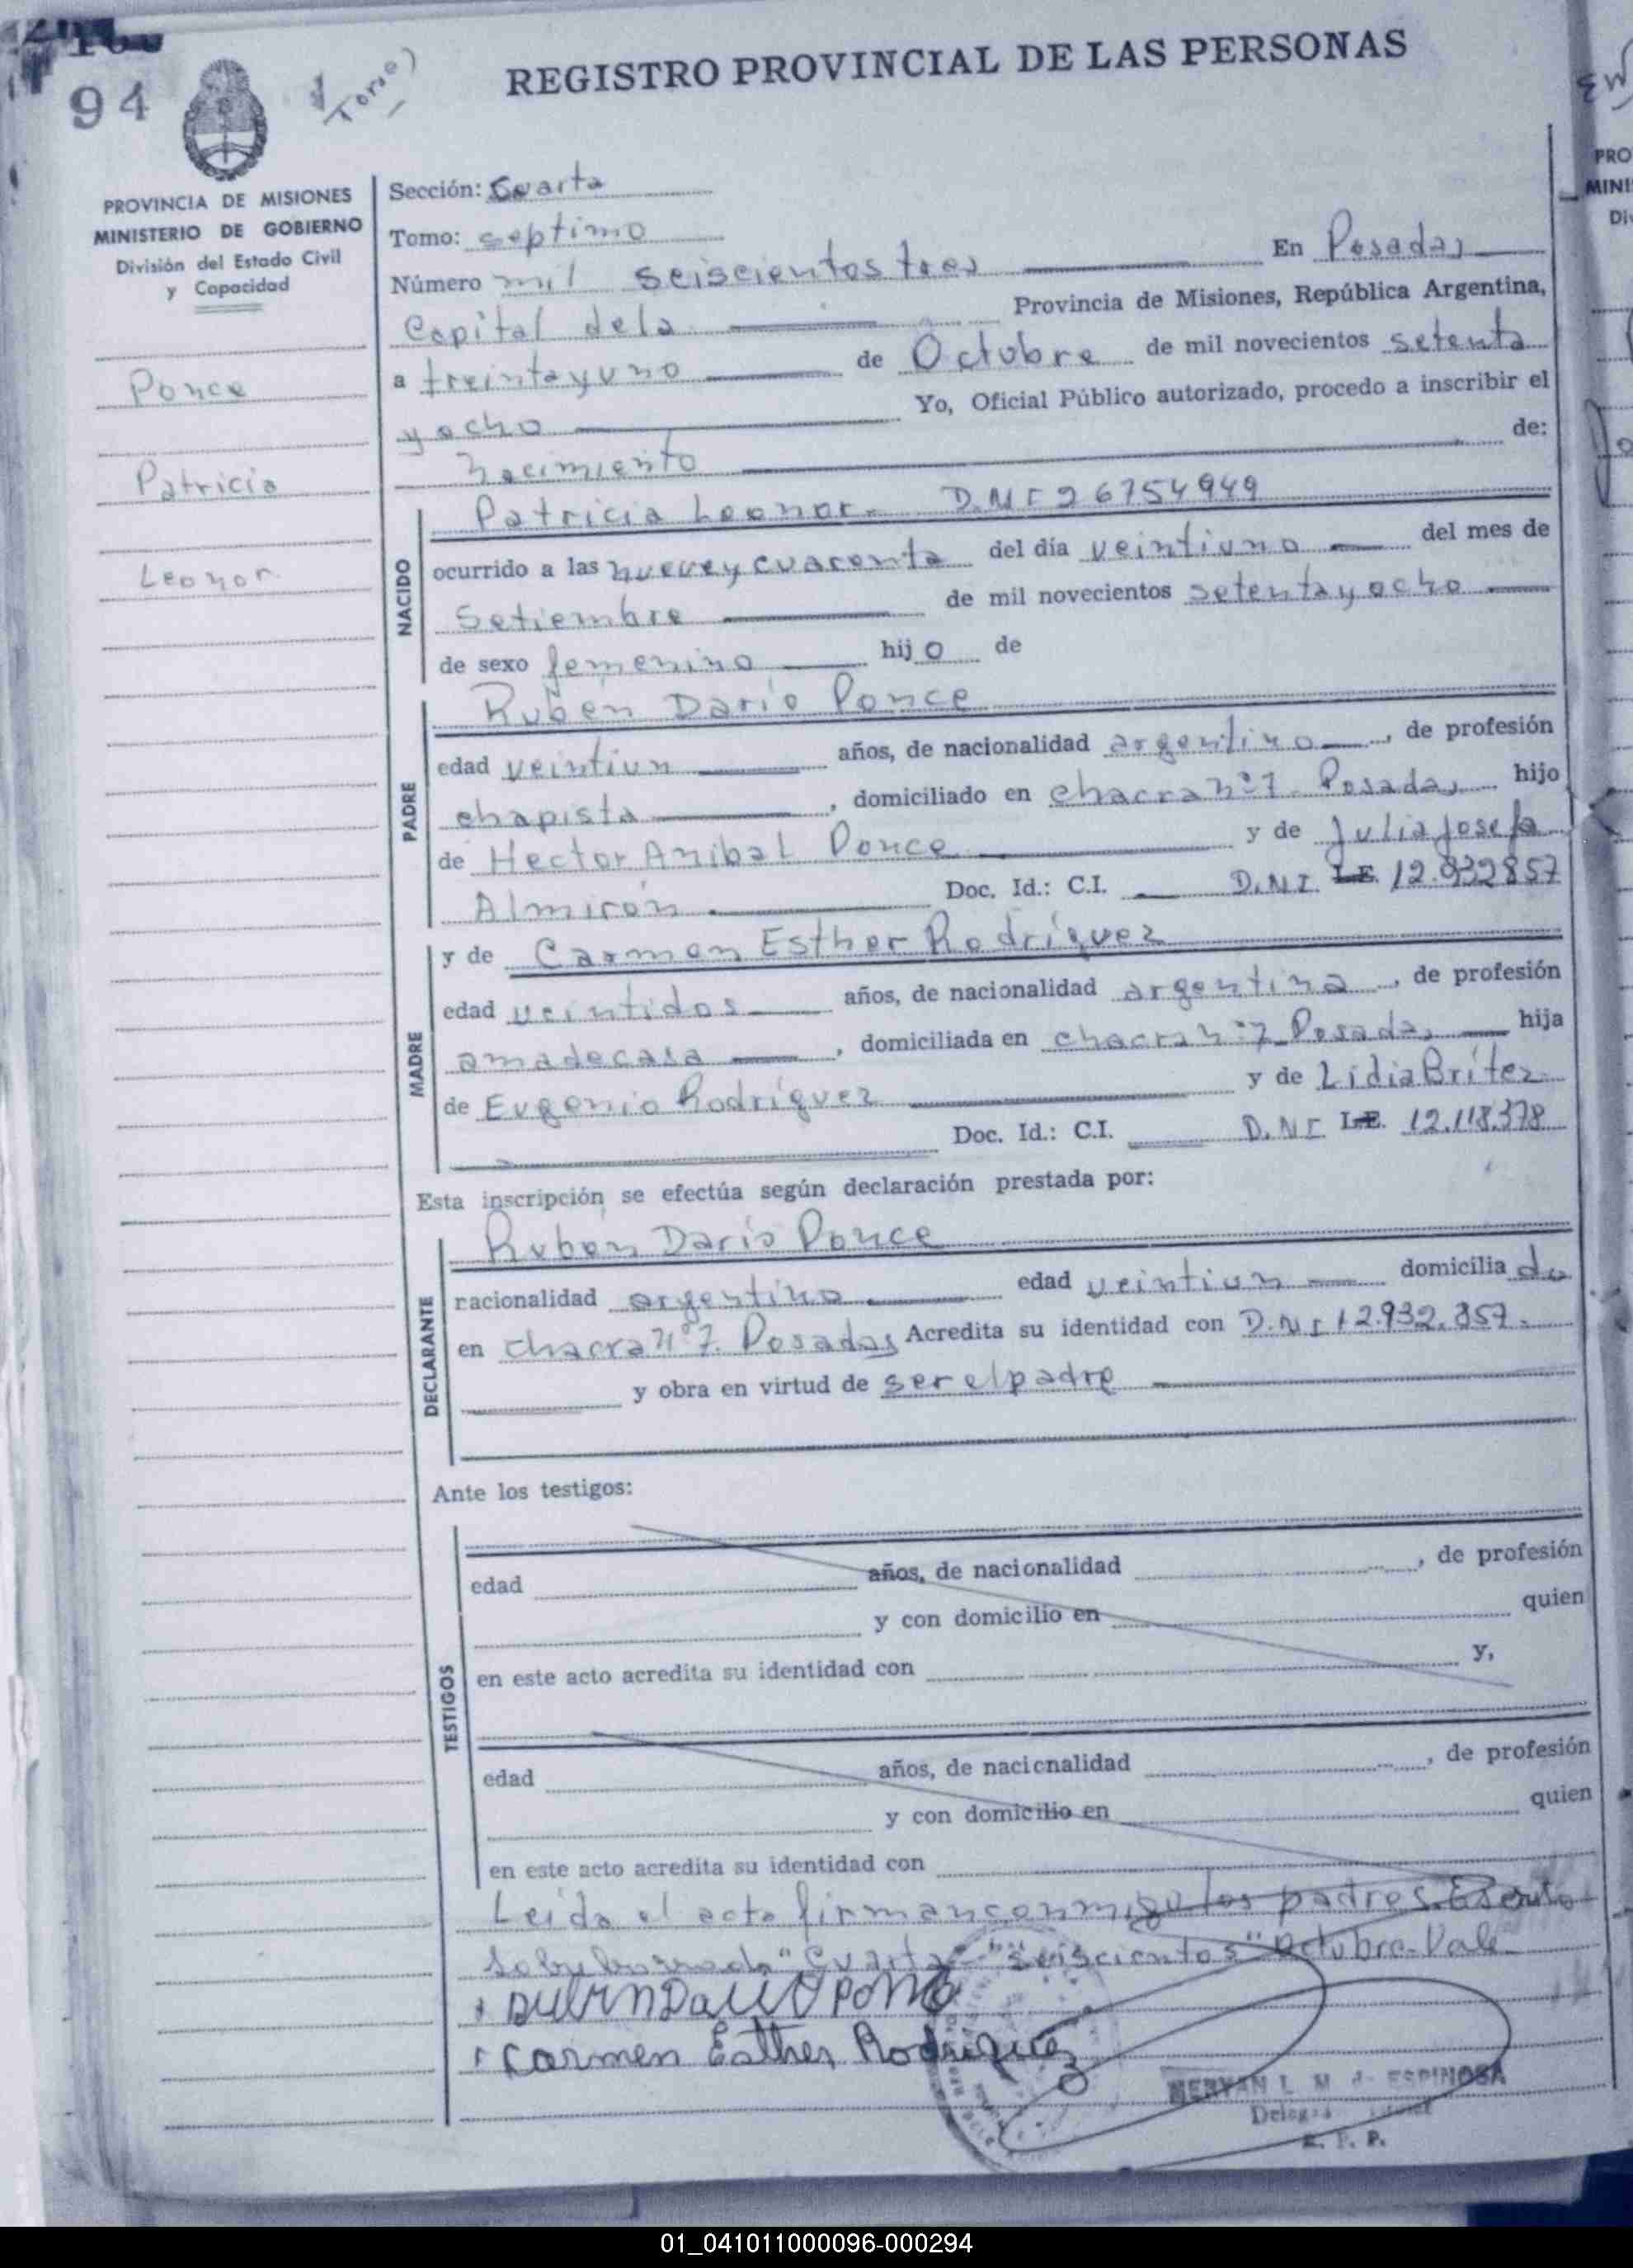 94
REGISTRO PROVINCIAL DE LAS PERSONAS
PROVINCIA DE MISIONES
MINISTERIO DE GOBIERNO
División del Estado Civil
y Capacidad
Ponce
Patricia
Leonor
Sección: Cuarta
Tomo: septimo
Número mil seiscientos tres En Posadas
Capital de la Provincia de Misiones, República Argentina,
a treinta y uno de Octubre de mil novecientos setenta
y ocho Yo, Oficial Público autorizado, procedo a inscribir el
nacimiento de:
NACIDO
Patricia Leonor. D.N.I 26754949
ocurrido a las nueve y cuarenta del día veintiuno del mes de
Setiembre de mil novecientos setenta y ocho
de sexo femenino hijo de
PADRE
Rubén Darío Ponce
edad veintiun años, de nacionalidad argentino, de profesión
chapista, domiciliado en chacra nº 7. Posadas hijo
de Hector Anibal Ponce y de Julia Josefa
Almirón Doc. Id.: C.I. D.N.I. L.E. 12.932857
MADRE
y de Carmen Esther Rodríguez
edad veintidos años, de nacionalidad argentina, de profesión
ama de casa, domiciliada en chacra nº 7 Posadas hija
de Eugenio Rodríguez y de Lidia Britez
Doc. Id.: C.I. D.N.I L.E. 12.118.378
Esta inscripción se efectúa según declaración prestada por:
DECLARANTE
Rubén Darío Ponce
nacionalidad argentino edad veintiun domicilia do
en chacra nº 7. Posadas Acredita su identidad con D.N.I 12.932.857.
y obra en virtud de ser el padre
Ante los testigos:
TESTIGOS
edad años, de nacionalidad, de profesión
y con domicilio en quien
en este acto acredita su identidad con y,
edad años, de nacionalidad, de profesión
y con domicilio en quien
en este acto acredita su identidad con
Leida el acta firman conmigo los padres. Escrito
sobreborrado "Cuarta" "seiscientos" Octubre-Vale
Ruben Dario Ponce
Carmen Esther Rodriguez
HERNAN L. M. de ESPINOSA
R. P. P.
PRO
MINI
01_041011000096-000294